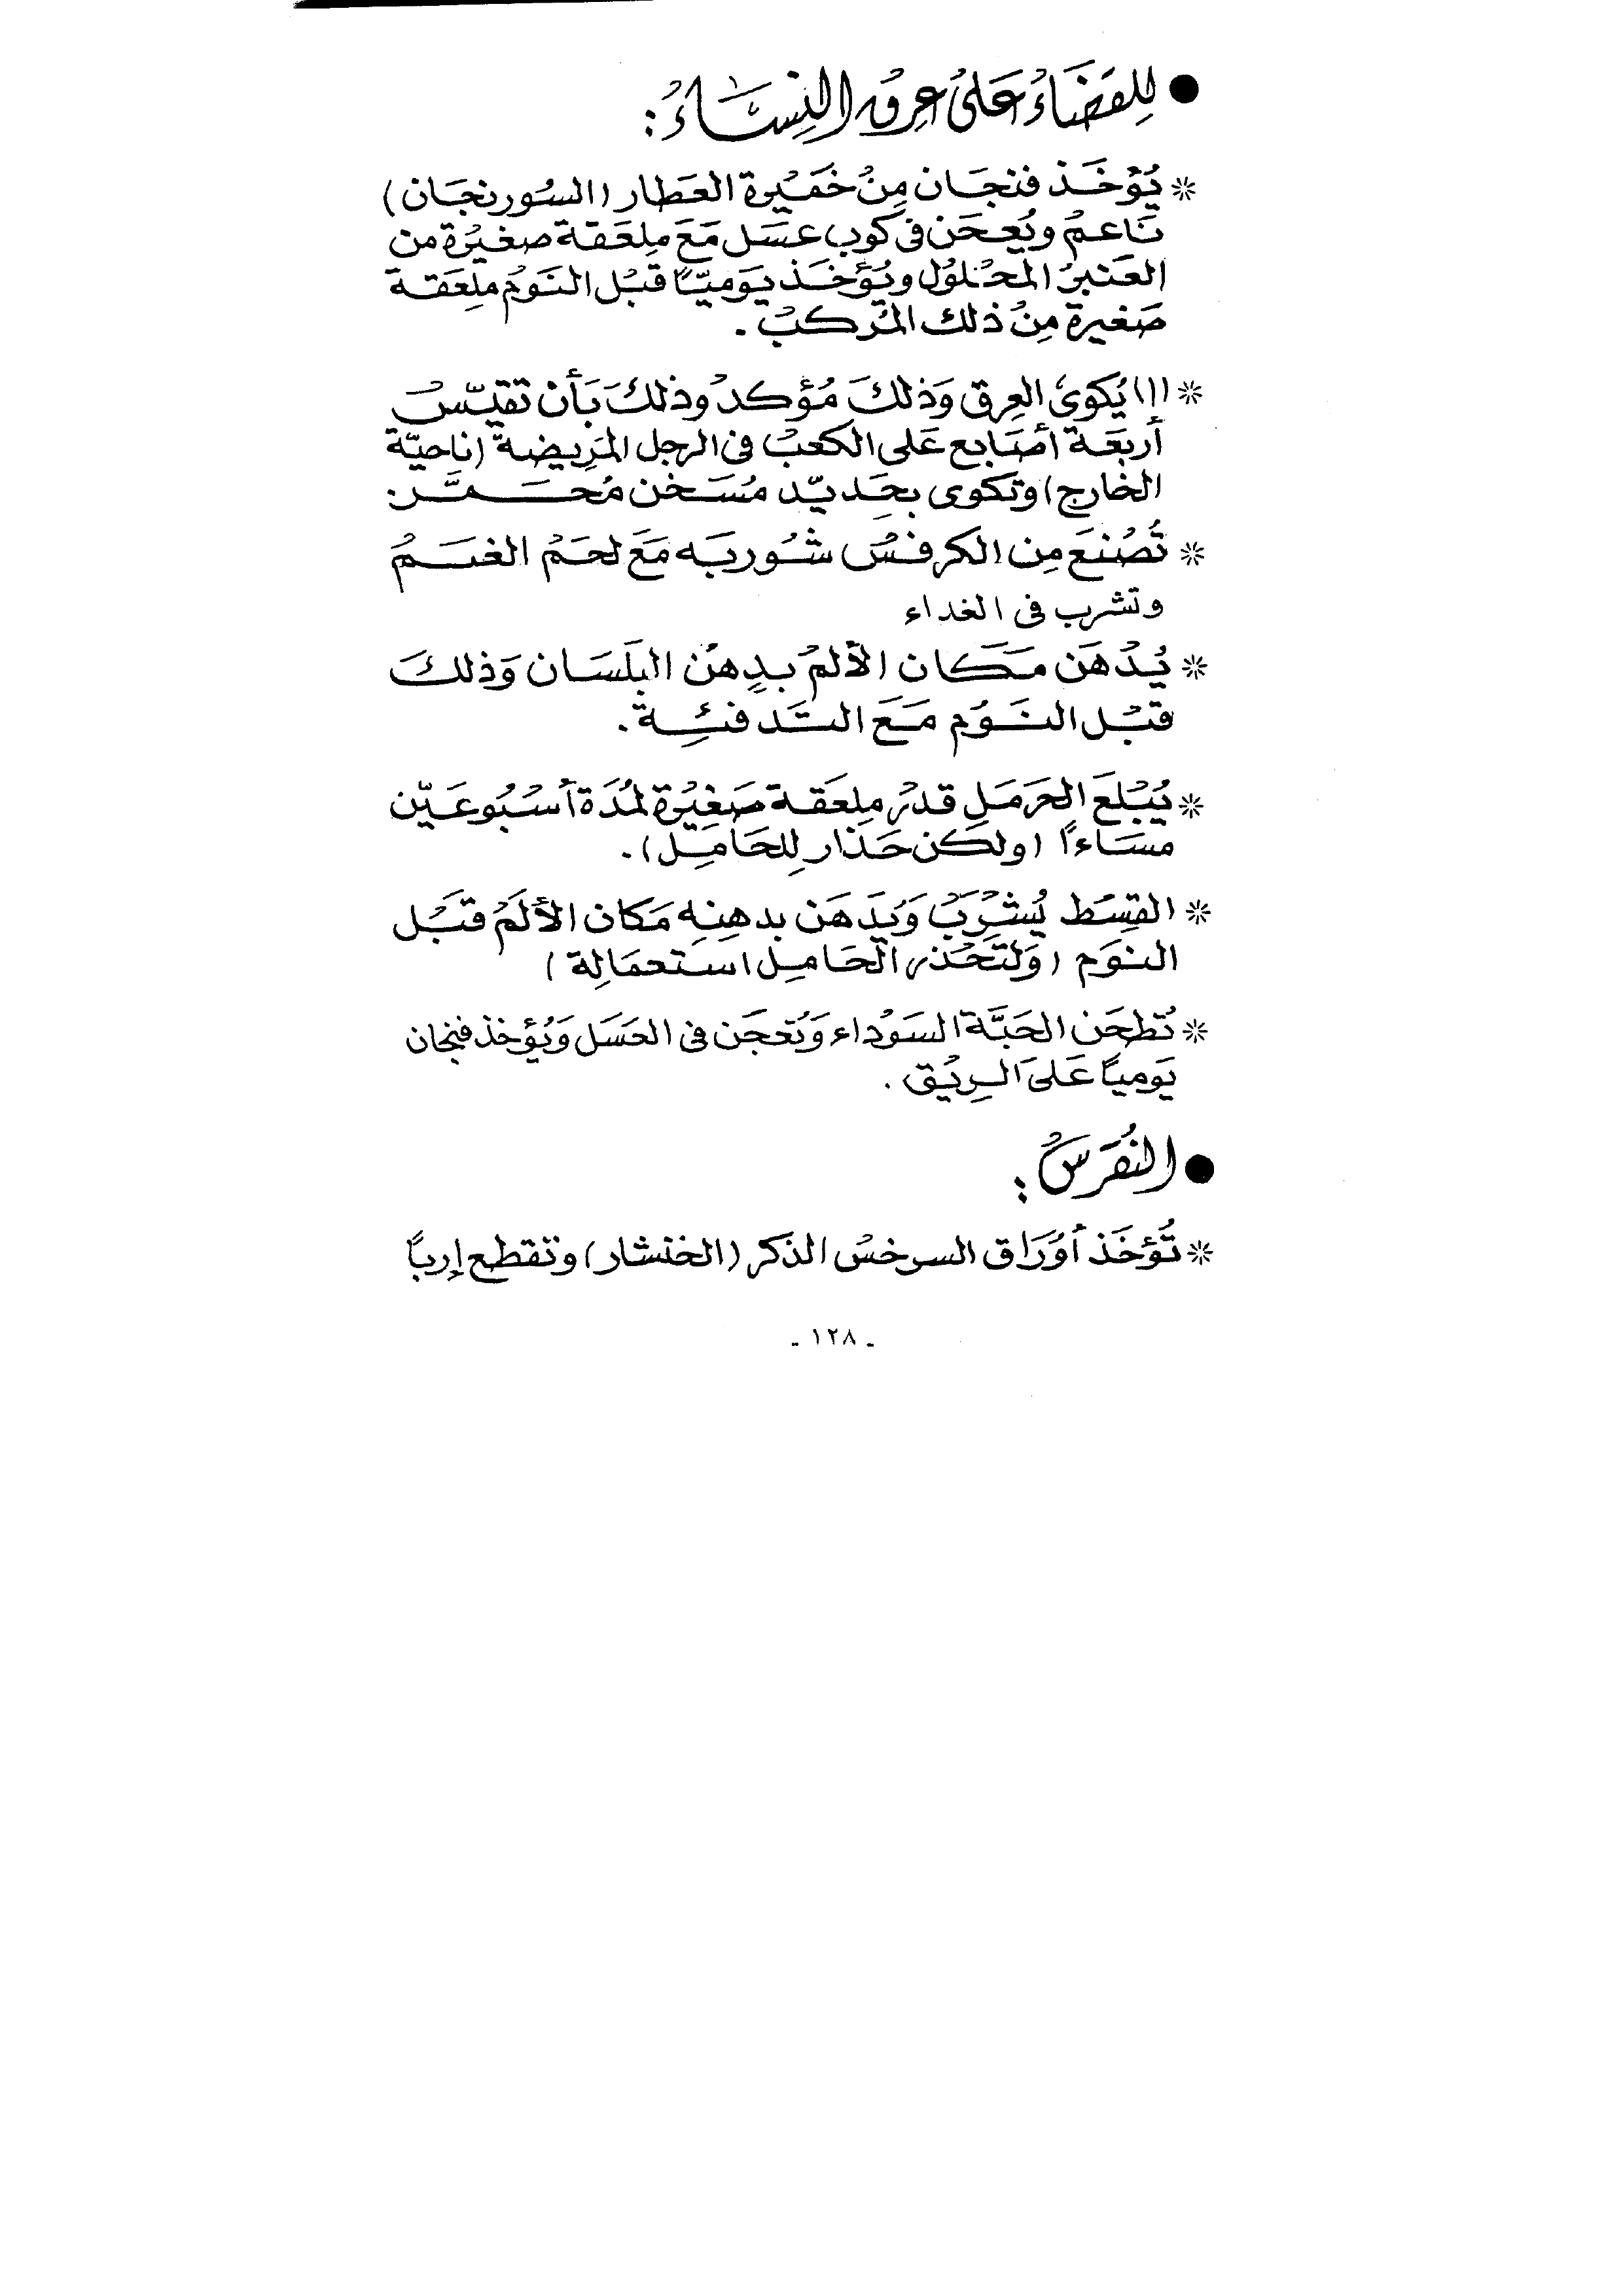 ● للقضاء على عرق النساء :
* يُؤخَذ فنجان مِنْ خَميْرة العَطار (السُورنجَان)
نَاعمْ ويُعجَن فى كوب عسَل مَعَ مِلعَقة صغيْرة من
العَنبرْ المحْلوُل ويُؤخَذ يَوميّاً قبْل النَومْ ملِعَقة
صَغيرة مِنْ ذلك المرْكبْ .
* (إ) يُكوىَ العِرق وَذلكَ مُؤكدْ وذلكَ بَأن تقيّسْ
أربَعَة أصَابع عَلى الكعَبْ فى الرجل المَرِيضة (ناحيّة
الخارج) وتكوى بحَديّد مُسَخن مُحَمَّر.
* تُصْنَعَ مِن الكرفسْ شُوربَه مَعَ لحَمْ الغنَمْ
وتشرب فى الغداء
* يُدْهَن مَكَان الألمْ بدِهنْ البلَسَان وَذلكَ
قبْل النَوْم مَعَ التَدفئِة .
* يُبْلَعَ الحَرمَل قدرْ مِلعَقة صَغيْرة لمُدَة أسْبُوعَيّن
مسَاءاً (ولكن حَذار لِلحَامِل) .
* القِسَط يُشْرَبْ وَيُدَهَن بدهنِه مَكان الألَمْ قبَْل
النوَم (وَلتَحْذر الحَامِل استعمَالِة)
* تُطحَن الحَبَّة السَوْداء وَتُعجَن فى العَسَل وَيُؤخذ فنجان
يَومياً عَلىَ الرِيْق .
● النُقرَسْ :
* تُؤخَذ أوْرَاق السرخسْ الذَكر (الخنشار) وتقطع إرباً
- ١٢٨ -